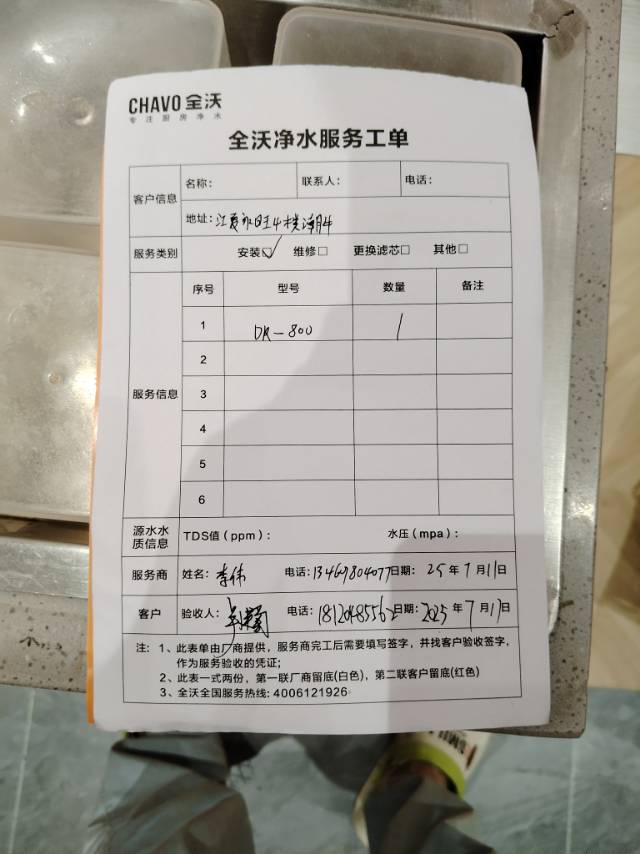 CHAVO 全沃
专注厨房净水
全沃净水服务工单
客户信息
名称：
联系人：
电话：
地址：江夏 旺4栋
服务类别
安装☑ 维修□ 更换滤芯□ 其他□
服务信息
序号 型号 数量 备注
1 DR-800 1
2
3
4
5
6
源水水质信息
TDS值（ppm）： 水压（mpa）：
服务商 姓名：李伟 电话：13469804077 日期：25年7月17日
客户 验收人： 电话：18120485562 日期：2025年7月17日
注：1、此表单由厂商提供，服务商完工后需要填写签字，并找客户验收签字，
作为服务验收的凭证；
2、此表一式两份，第一联厂商留底(白色)，第二联客户留底(红色)
3、全沃全国服务热线：4006121926